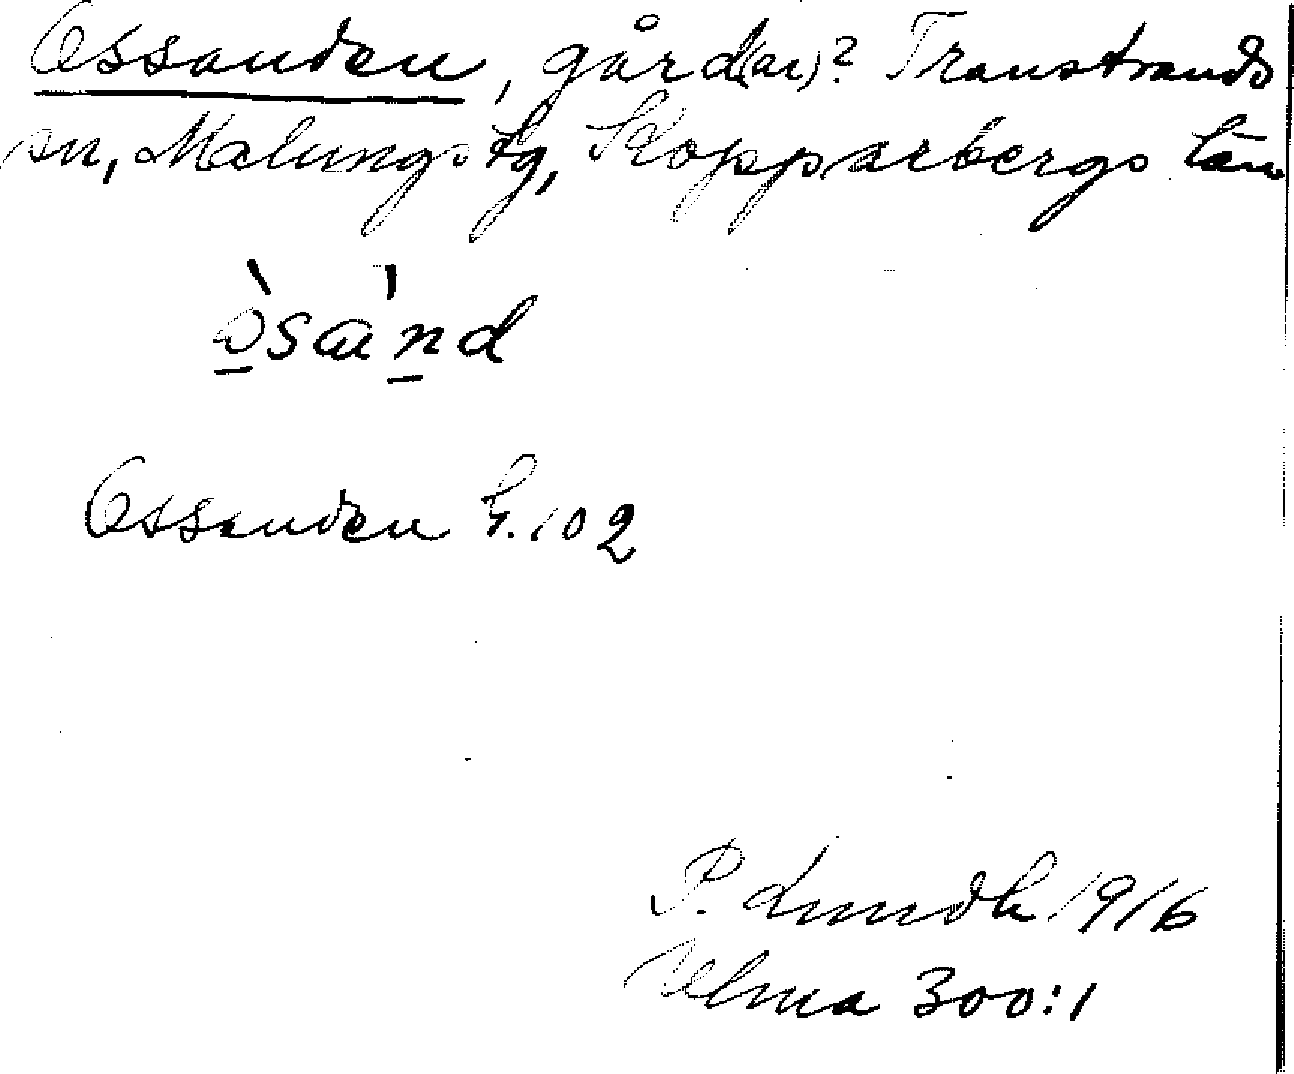 Ossanden, gård(ar)? Transtrands
sn, Malungs tg, Kopparbergs län
ò̲sa'n̲d
Ossanden h. 102
P. Lundh 1916
Ulma 300:1